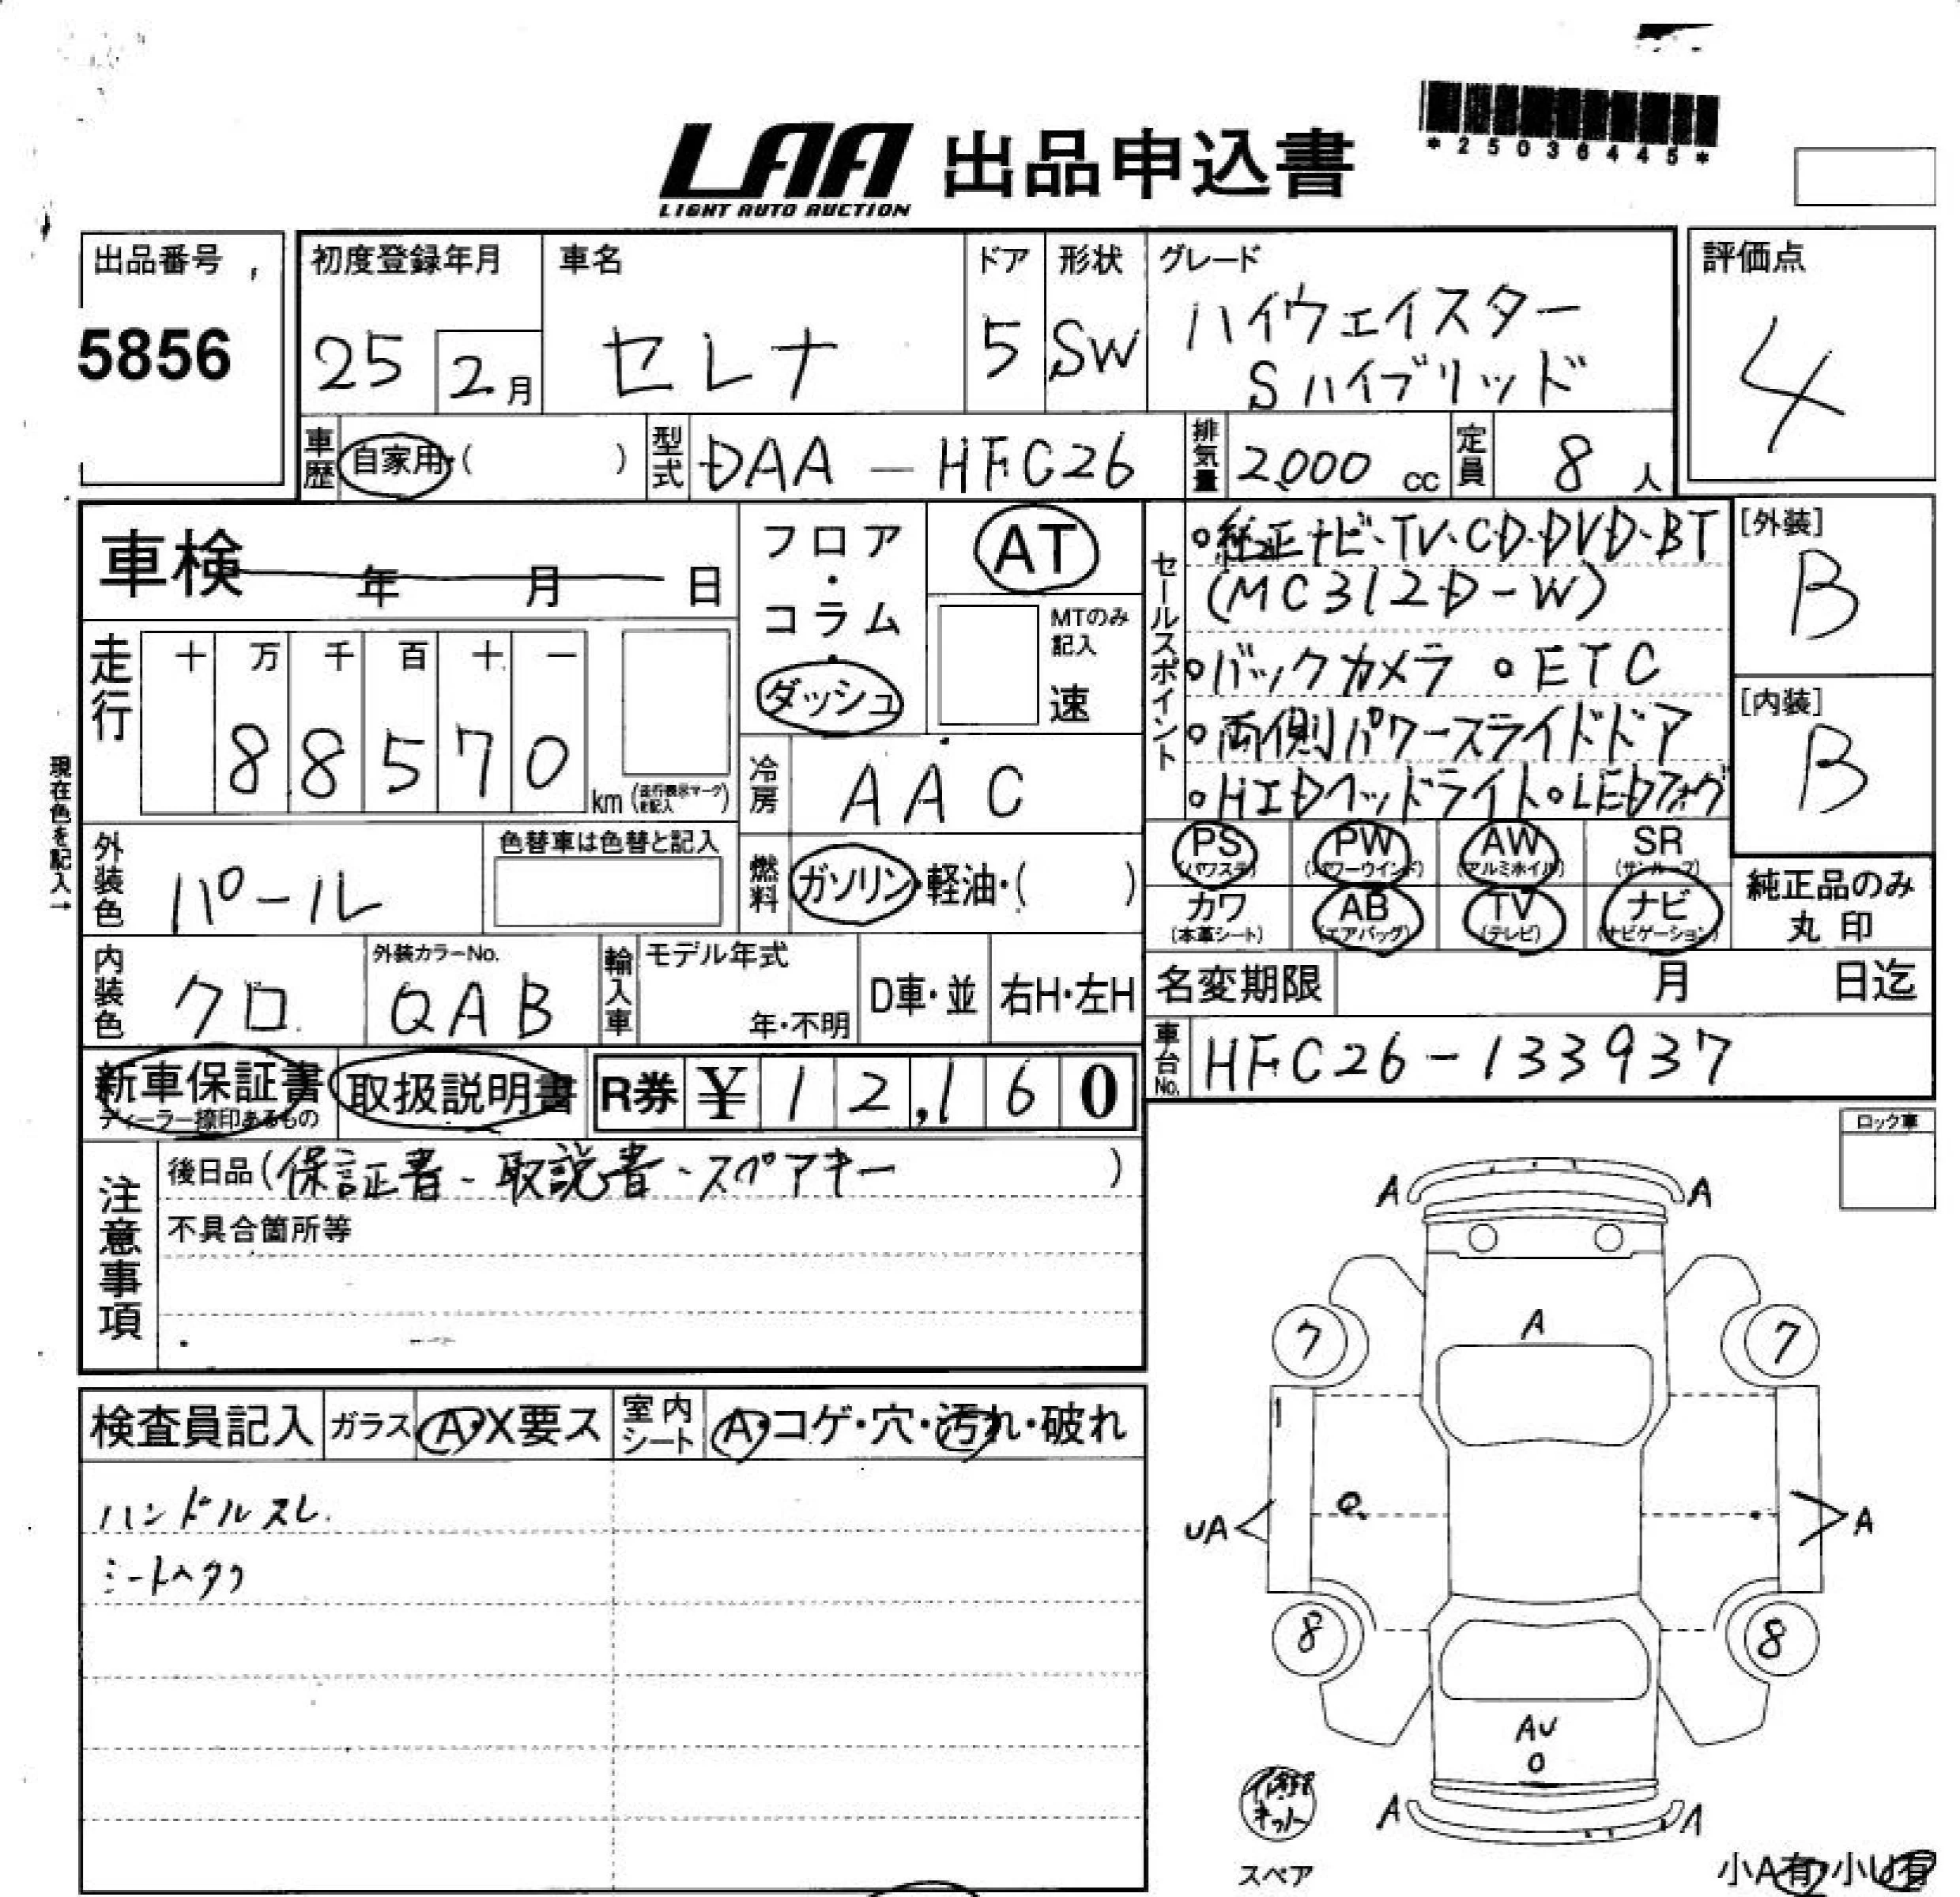 LAA 出品申込書
LIGHT AUTO AUCTION
*25036445*
出品番号
5856
初度登録年月
25 2月
車名
セレナ
ドア
5
形状
SW
グレード
ハイウェイスター
Sハイブリッド
評価点
4
車歴 自家用・( )
型式 DAA-HFC26
排気量 2000 cc
定員 8 人
車検 年 月 日
フロア・コラム・ダッシュ
AT
MTのみ記入
速
セールスポイント
・純正ナビ・TV・CD・DVD・BT
(MC312D-W)
・バックカメラ ・ETC
・両側パワースライドドア
・HIDヘッドライト・LEDフォグ
[外装]
B
[内装]
B
走行
十 万 千 百 十 一
8 8 5 7 0 km (走行表示マークを記入)
現在色を記入→
冷房 AAC
外装色 パール
色替車は色替と記入
燃料 ガソリン・軽油・( )
PS (パワステ)
PW (パワーウインド)
AW (アルミホイル)
SR (サンルーフ)
カワ (本革シート)
AB (エアバッグ)
TV (テレビ)
ナビ (ナビゲーション)
純正品のみ
丸印
内装色 クロ
外装カラーNo. QAB
輸入車 モデル年式 年・不明
D車・並 右H・左H
名変期限 月 日迄
車台No. HFC26-133937
新車保証書
ディーラー捺印あるもの
取扱説明書
R券 ¥12,160
ロック車
注意事項
後日品(保証書・取説書・スペアキー )
不具合箇所等
検査員記入 ガラス A・X要ス 室内シート A・コゲ・穴・汚れ・破れ
ハンドルスレ
シートヘタリ
A A
7 A 7
UA A
8 8
AU
A A
キット
スペア
小A有 2 小U有 2